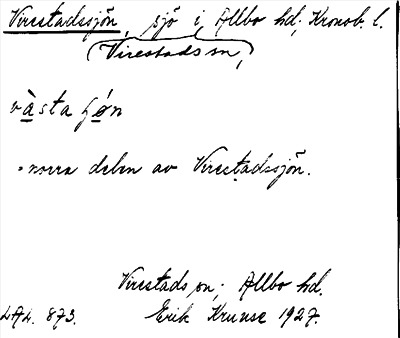 Virestadssjön, sjö i Allbo hd, Kronob. l.
(Virestads sn,
vàsta hę́n
"norra delen av Virestadssjön.
Virestads sn; Allbo hd.
LAL. 873. Erik Kruuse 1927.